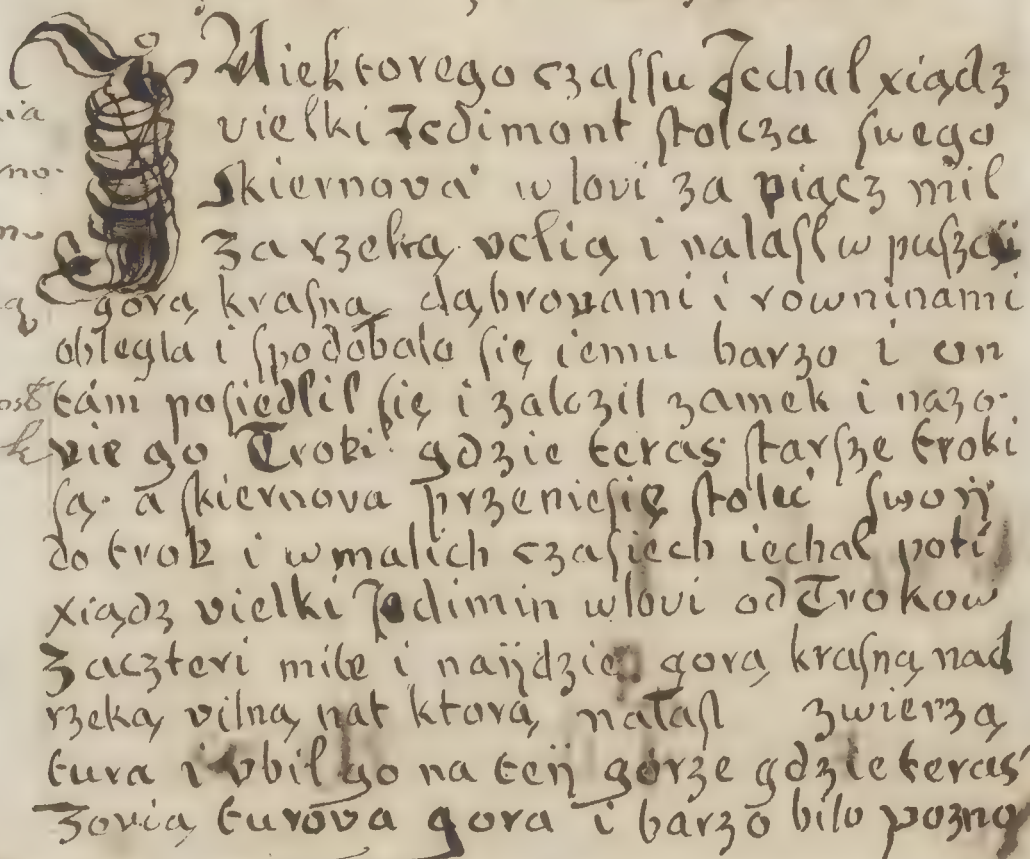 I Niektorego czassu Jechal xiądz
vielki Jedimont stolcza swego
skiernova w lovi za piącz mil
za rzeką velią i nalasl w puszczÿ
gorą krasną dąbrovami i rowninami
oblegla i spodobalo się iemu barzo i on
tám posiedlil się i zalozil zamek i nazo-
vie go Troki gdzie teras starsze troki
są a skiernova przeniesię stolec swoÿ
do trok i w malich czasiech iechal poti
xiądz vielki Jedimin wlovi od Trokow
zaczteri mile i naÿdzie gorą krasną nad
rzeką vilną nat ktorą nalasl zwierzą
tura i vbil go na teÿ gorze gdzie teras
zovią turova gora i barzo bilo pozno